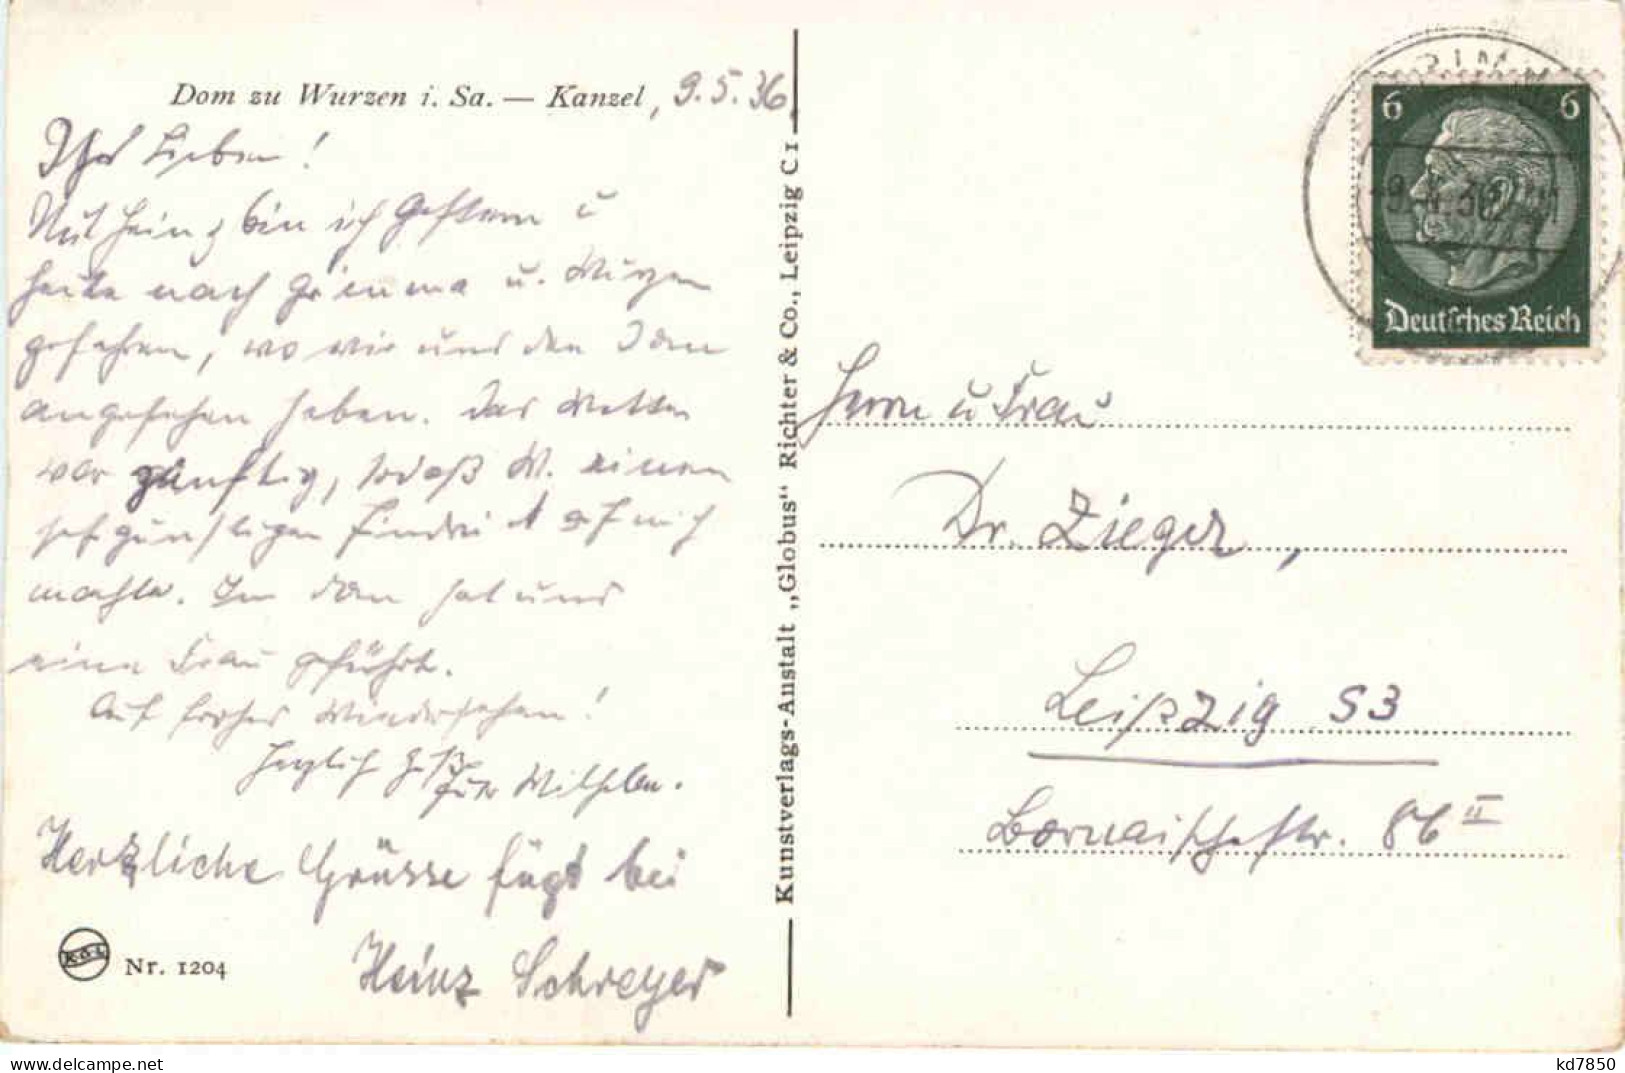 Dom zu Wurzen i. Sa. — Kanzel, 9.5.36
Ihr Lieben!
Mit Heinz bin ich gestern u
heute nach Grimma u. Wurzen
gefahren, wo wir uns den Dom
angesehen haben. Das Wetter
war günstig, sodaß W. einen
sehr günstigen Eindruck auf mich
machte. Im Dom hat uns
eine Frau geführt.
Auf frohes Wiedersehen!
Herzlich grüßt
Euer Wilhelm.
Herzliche Grüsse fügt bei
Heinz Schreyer
K·Ö·L
Nr. 1204
Kunstverlags-Anstalt „Globus“ Richter & Co., Leipzig C 1
6 6
Deutsches Reich
Herrn u Frau
Dr. Zieger,
Leipzig S3
Bornaischestr. 86 II
kd7850